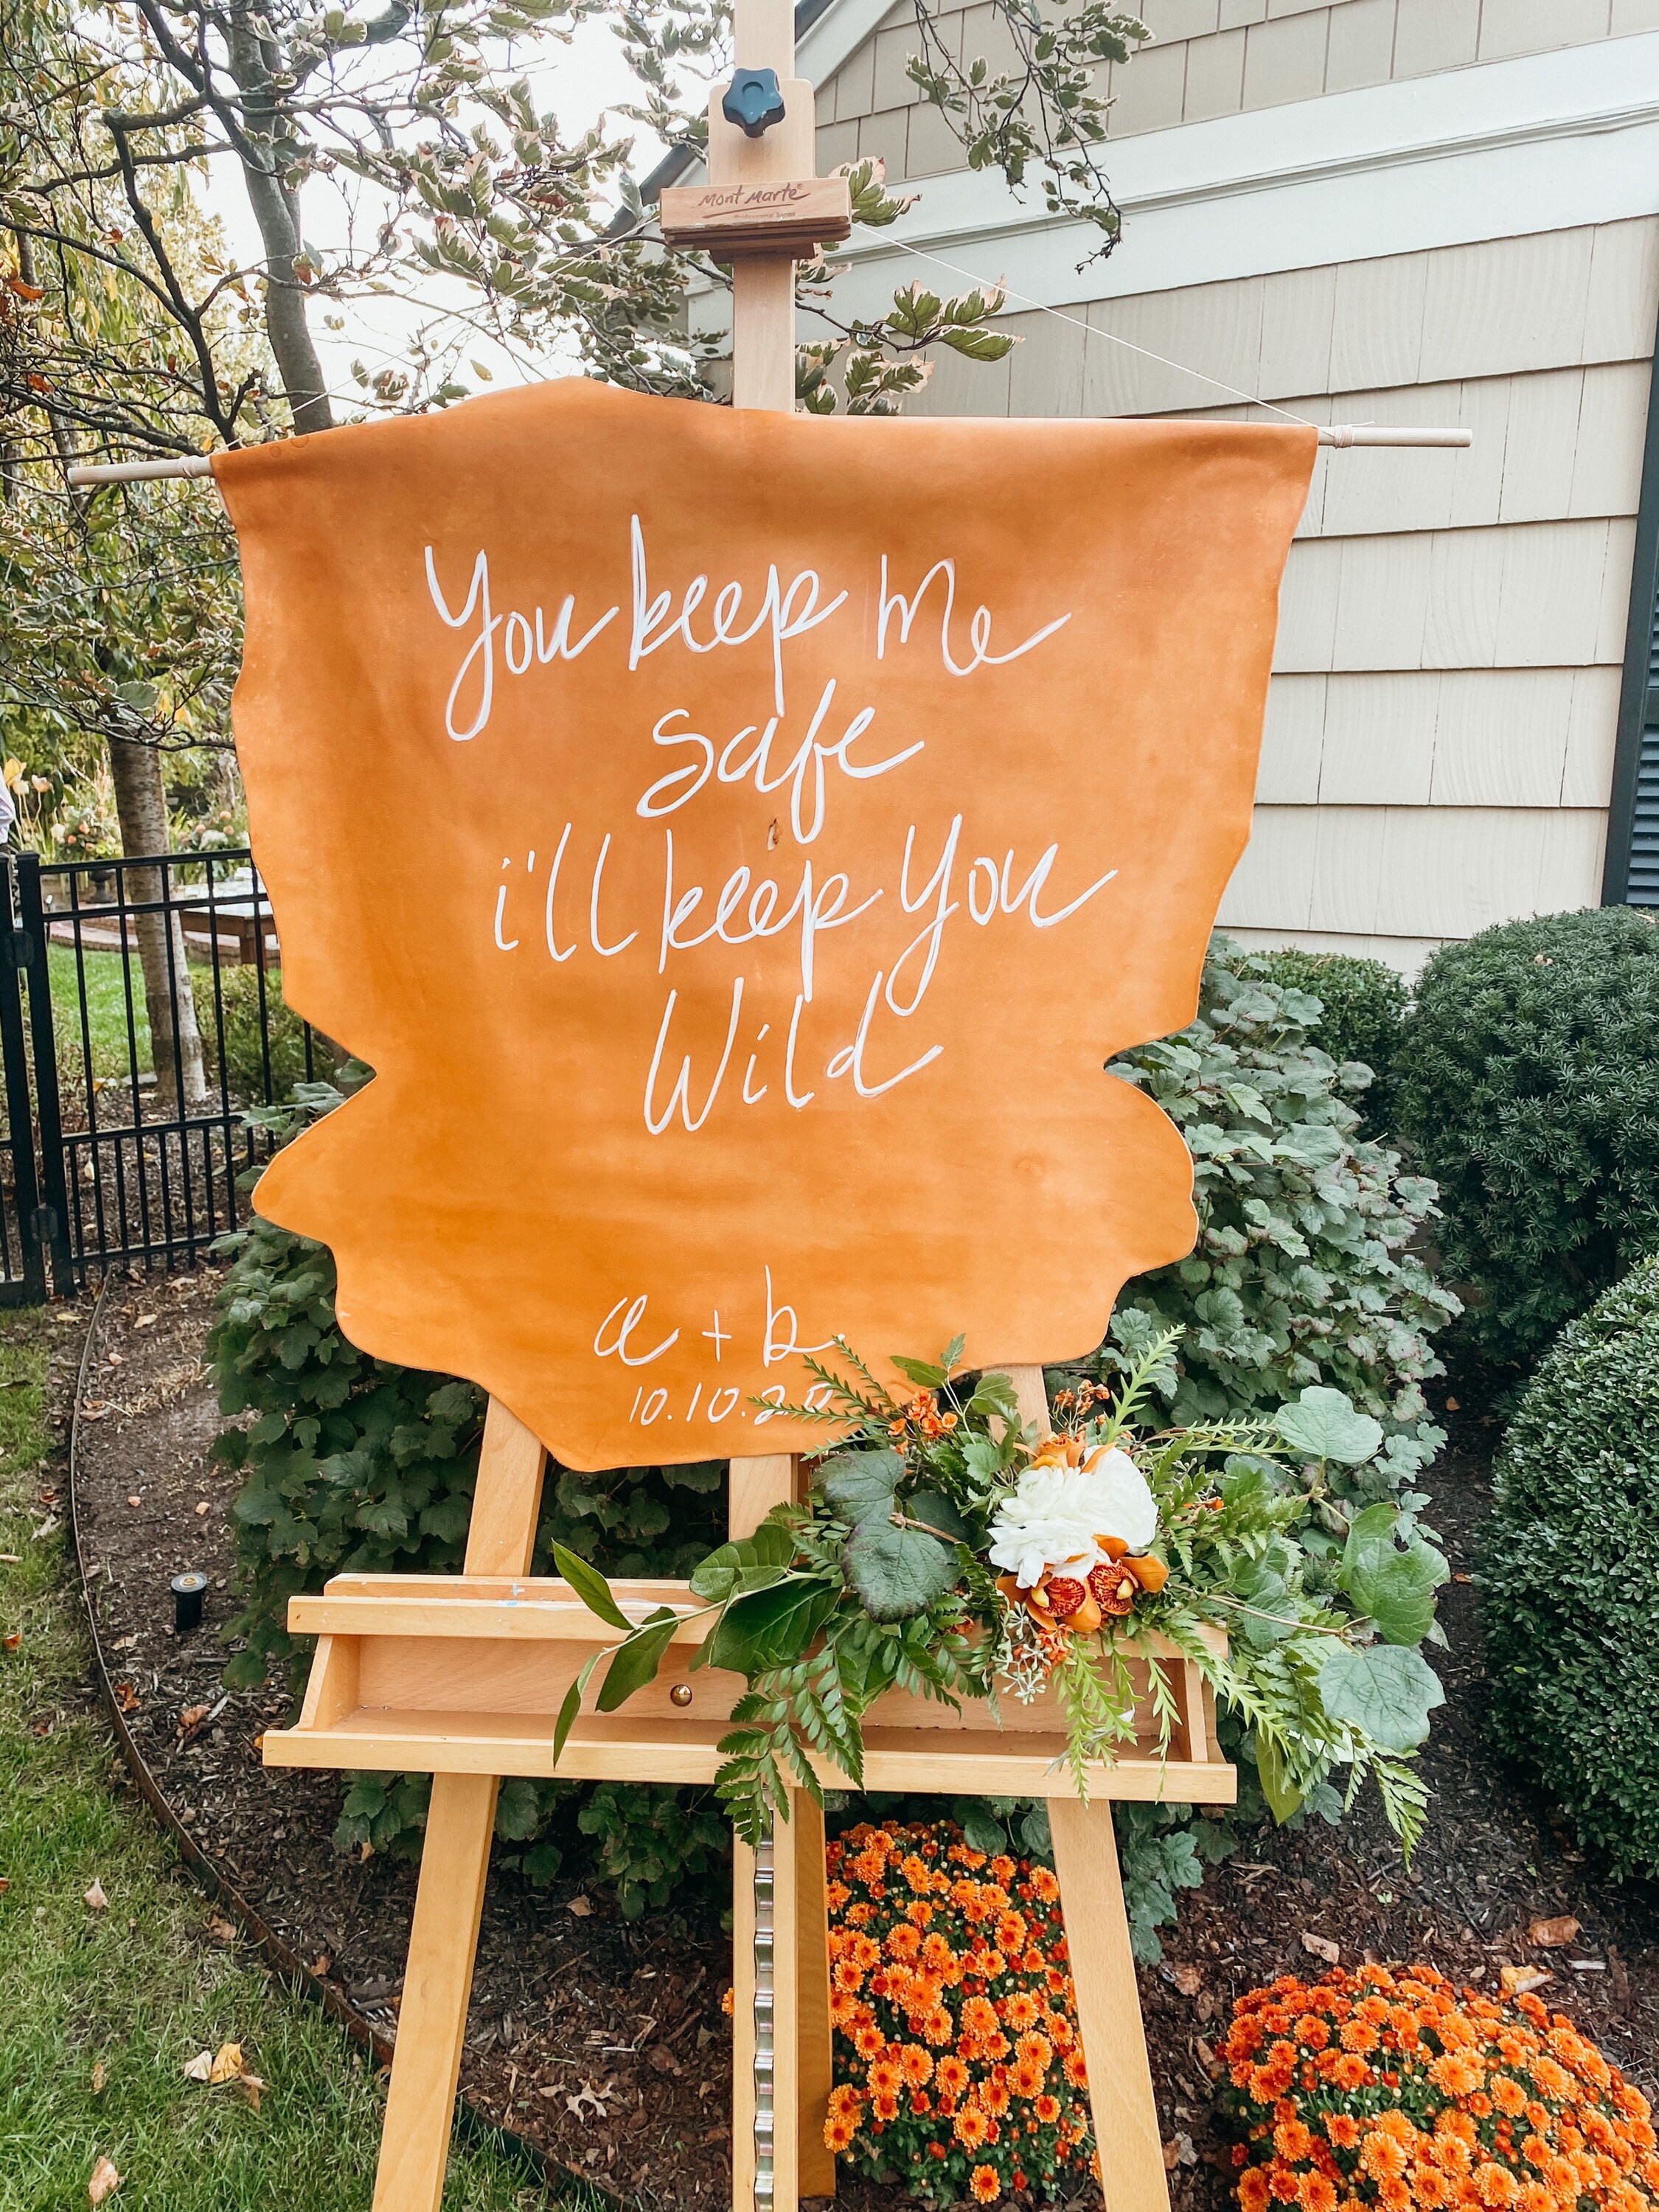 Mont Marte®
Professional Series
You keep me
safe
i'll keep you
Wild
a + b
10.10.20